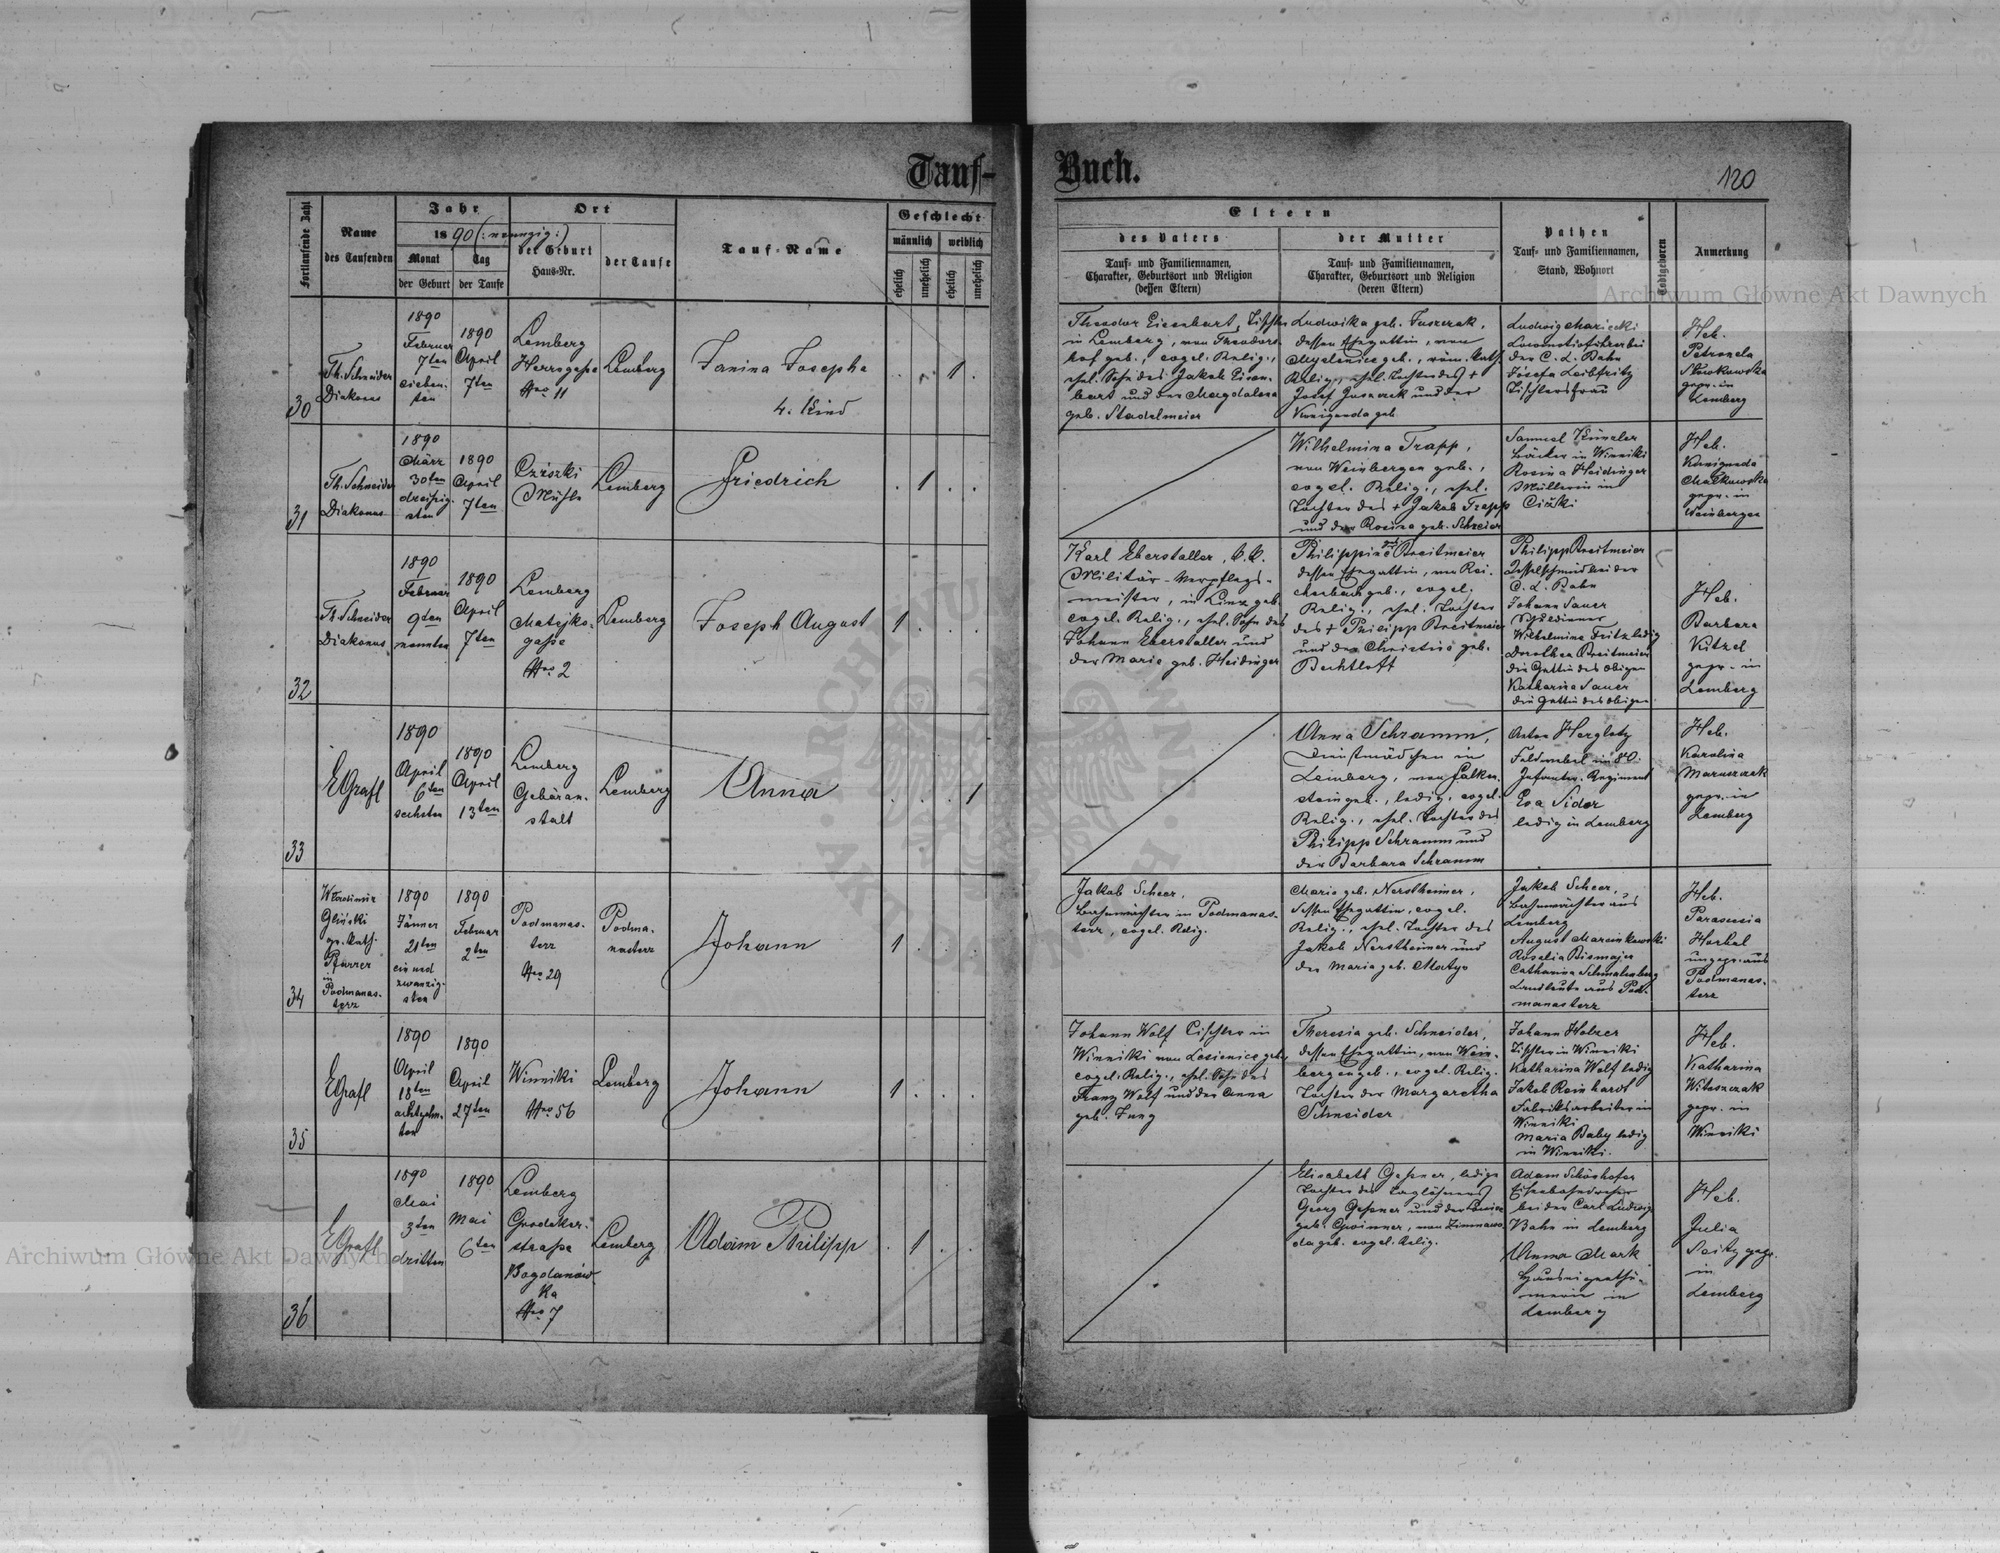 Tauf-
Buch.
120
Fortlaufende Zahl
Name
des Taufenden
Jahr
1890 (: neunzig :)
Monat
der Geburt
Tag
der Taufe
Ort
der Geburt
Haus-Nr.
der Taufe
Tauf-Name
Geschlecht
männlich
weiblich
ehelich
unehelich
ehelich
unehelich
Eltern
des Vaters
Tauf- und Familiennamen,
Charakter, Geburtsort und Religion
(dessen Eltern)
der Mutter
Tauf- und Familiennamen,
Charakter, Geburtsort und Religion
(deren Eltern)
Pathen
Tauf- und Familiennamen,
Stand, Wohnort
Todtgeboren
Anmerkung
30
Th. Schneider
Diakonus
1890
Februar
7ten
sieben-
ten
1890
April
7ten
Lemberg
Herrngasse
Nro 11
Lemberg
Janina Josepha
4. Kind
1
Theodor Eisenbart, Tischler
in Lemberg, von Theodors-
hof geb., evgel. Relig.,
ehel. Sohn des Jakob Eisen-
bart und der Magdalena
geb. Stadelmeier
Ludwika geb.
dessen Ehegattin, von
Myslenice geb., röm. kath.
Relig., ehel. Tochter des +
Josef und der
geb.
Ludwig Mariecki
Locomotivführer bei
der C. L. Bahn
Josefa Leibfritz
Tischlersfrau
Heb.
Petronela
gepr. in
Lemberg
31
Th. Schneider
Diakonus
1890
März
30ten
dreissig-
sten
1890
April
7ten
Mühle
Lemberg
Friedrich
1
Wilhelmina Trapp,
von Weinbergen geb.,
evgel. Relig., ehel.
Tochter des + Jakob Trapp
und der Rosina geb. Schreier
Samuel Künzler
Bäcker in Winniki
Rosina Heidinger
Müllerin in
Heb.
Małkowska
gepr. in
Weinbergen
32
Th. Schneider
Diakonus
1890
Februar
9ten
neunten
1890
April
7ten
Lemberg
Matejko-
gasse
Nro 2
Lemberg
Joseph August
1
Karl Eberstaller, k. k.
Militär-Verpflegs-
meister, in Linz geb.
evgel. Relig., ehel. Sohn des
Johann Eberstaller und
der Marie geb. Heidinger
Philippine geb. Breitmeier
dessen Ehegattin, von Rei-
chenbach geb., evgel.
Relig., ehel. Tochter
des + Philipp Breitmeier
und der Christine geb.
Bechtloff
Philipp Breitmeier
Kesselschmied bei der
C. L. Bahn
Johann Sauer
Schuldiener
Wilhelmine Fritz ledig
Dorothea Breitmeier
die Gattin des obigen
Katharina Sauer
die Gattin des obigen
Heb.
Barbara
Kitzel
gepr. in
Lemberg
33
E Grafl
1890
April
6ten
sechsten
1890
April
13ten
Lemberg
Gebäran-
stalt
Lemberg
Anna
1
Anna Schramm,
Dienstmädchen in
Lemberg, von Falken-
stein geb., ledig, evgel.
Relig., ehel. Tochter des
Philipp Schramm und
der Barbara Schramm
Anton Hergletz
Feldwebel im 80.
Infanter. Regiment
Eva Sider
ledig in Lemberg
Heb.
Karolina
gepr. in
Lemberg
34
Wlodimir
Gliński
gr. kath.
Pfarrer
in
Podmanas-
terz
1890
Jänner
21ten
ein und
zwanzig-
sten
1890
Februar
2ten
Podmanas-
terz
Nro 29
Podma-
nasterz
Johann
1
Jakob Scheer,
Bahnwächter in Podmanas-
terz, evgel. Relig.
Maria geb. Nerstheimer,
dessen Ehegattin, evgel.
Relig., ehel. Tochter des
Jakob Nerstheimer und
der Maria geb. Matys
Jakob Scheer,
Bahnwächter aus
Lemberg
August Marcinkowski
Rosalia Bismajer
Catharina Schmalenberg
Landleute aus Pod-
manasterz
Heb.
ungepr. aus
Podmanas-
terz
35
E Grafl
1890
April
18ten
achtzehn-
ten
1890
April
27ten
Winniki
Nro 56
Lemberg
Johann
1
Johann Wolf Tischler in
Winniki von Lesienice geb.,
evgel. Relig., ehel. Sohn des
Franz Wolf und der Anna
geb. Jung
Theresia geb. Schneider,
dessen Ehegattin, von Wein-
bergen geb., evgel. Relig.
Tochter der Margaretha
Schneider
Johann Holzer
Tischler in Winniki
Katharina Wolf ledig
Jakob Reinhardt
Fabriksarbeiter in
Winniki
Maria Baby ledig
in Winniki.
Heb.
Katharina
Witoszczak
gepr. in
Winniki
36
E Grafl
1890
Mai
3ten
dritten
1890
Mai
6ten
Lemberg
Grodeker-
strasse
Bogdanów-
ka
Nro 7
Lemberg
Adam Philipp
1
Elisabeth Gessner, ledige
Tochter des Taglöhners
Georg Gessner und der
geb. Gwinner, von Zimnawo-
da geb. evgel. Relig.
Adam Schönhofer
Eisenbahndreher
bei der Carl Ludwig
Bahn in Lemberg
Anna Mark
Hauseigenthü-
merin in
Lemberg
Heb.
Julia
Seitz gepr.
in
Lemberg
Archiwum Główne Akt Dawnych
Archiwum Główne Akt Dawnych